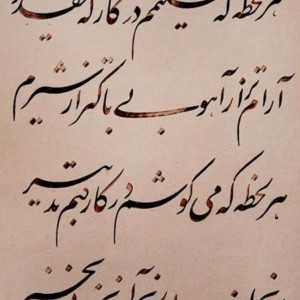 هر لحظه که تسلیمم در کارگه تقدیر
آرام تر از آهو بی باک تر از شیرم
هر لحظه که می کوشم در کار کنم تدبیر